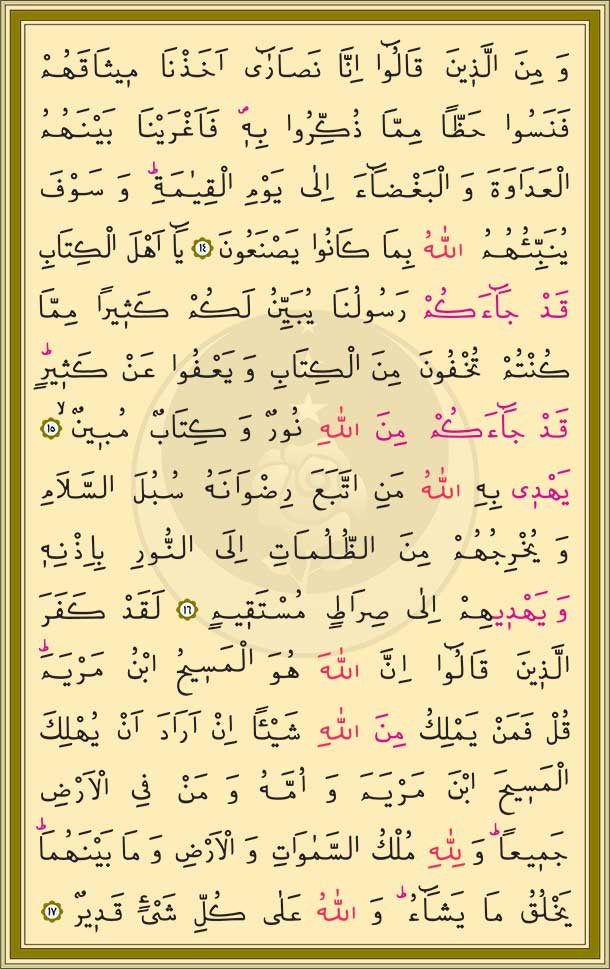 وَ مِنَ الَّذٖينَ قَالُٓوا اِنَّا نَصَارٰٓى اَخَذْنَا مٖيثَاقَهُمْ
فَنَسُوا حَظًّا مِمَّا ذُكِّرُوا بِهٖࣕ فَاَغْرَيْنَا بَيْنَهُمُ
الْعَدَاوَةَ وَ الْبَغْضَٓاءَ اِلٰى يَوْمِ الْقِيٰمَةِؕ وَ سَوْفَ
يُنَبِّئُهُمُ اللّٰهُ بِمَا كَانُوا يَصْنَعُونَ ﴿١٤﴾ يَٓا اَهْلَ الْكِتَابِ
قَدْ جَٓاءَكُمْ رَسُولُنَا يُبَيِّنُ لَكُمْ كَثٖيرًا مِمَّا
كُنْتُمْ تُخْفُونَ مِنَ الْكِتَابِ وَ يَعْفُوا عَنْ كَثٖيرٍؕ
قَدْ جَٓاءَكُمْ مِنَ اللّٰهِ نُورٌ وَ كِتَابٌ مُبٖينٌۙ ﴿١٥﴾
يَهْدٖى بِهِ اللّٰهُ مَنِ اتَّبَعَ رِضْوَانَهُ سُبُلَ السَّلَامِ
وَ يُخْرِجُهُمْ مِنَ الظُّلُمَاتِ اِلَى النُّورِ بِاِذْنِهٖ
وَ يَهْدٖيهِمْ اِلٰى صِرَاطٍ مُسْتَقٖيمٍ ﴿١٦﴾ لَقَدْ كَفَرَ
الَّذٖينَ قَالُٓوا اِنَّ اللّٰهَ هُوَ الْمَسٖيحُ ابْنُ مَرْيَمَؕ
قُلْ فَمَنْ يَمْلِكُ مِنَ اللّٰهِ شَيْـًٔا اِنْ اَرَادَ اَنْ يُهْلِكَ
الْمَسٖيحَ ابْنَ مَرْيَمَ وَ اُمَّهُ وَ مَنْ فِى الْاَرْضِ
جَمٖيعًاؕ وَ لِلّٰهِ مُلْكُ السَّمٰوَاتِ وَ الْاَرْضِ وَ مَا بَيْنَهُمَاؕ
يَخْلُقُ مَا يَشَٓاءُؕ وَ اللّٰهُ عَلٰى كُلِّ شَیْءٍ قَدٖيرٌ ﴿١٧﴾